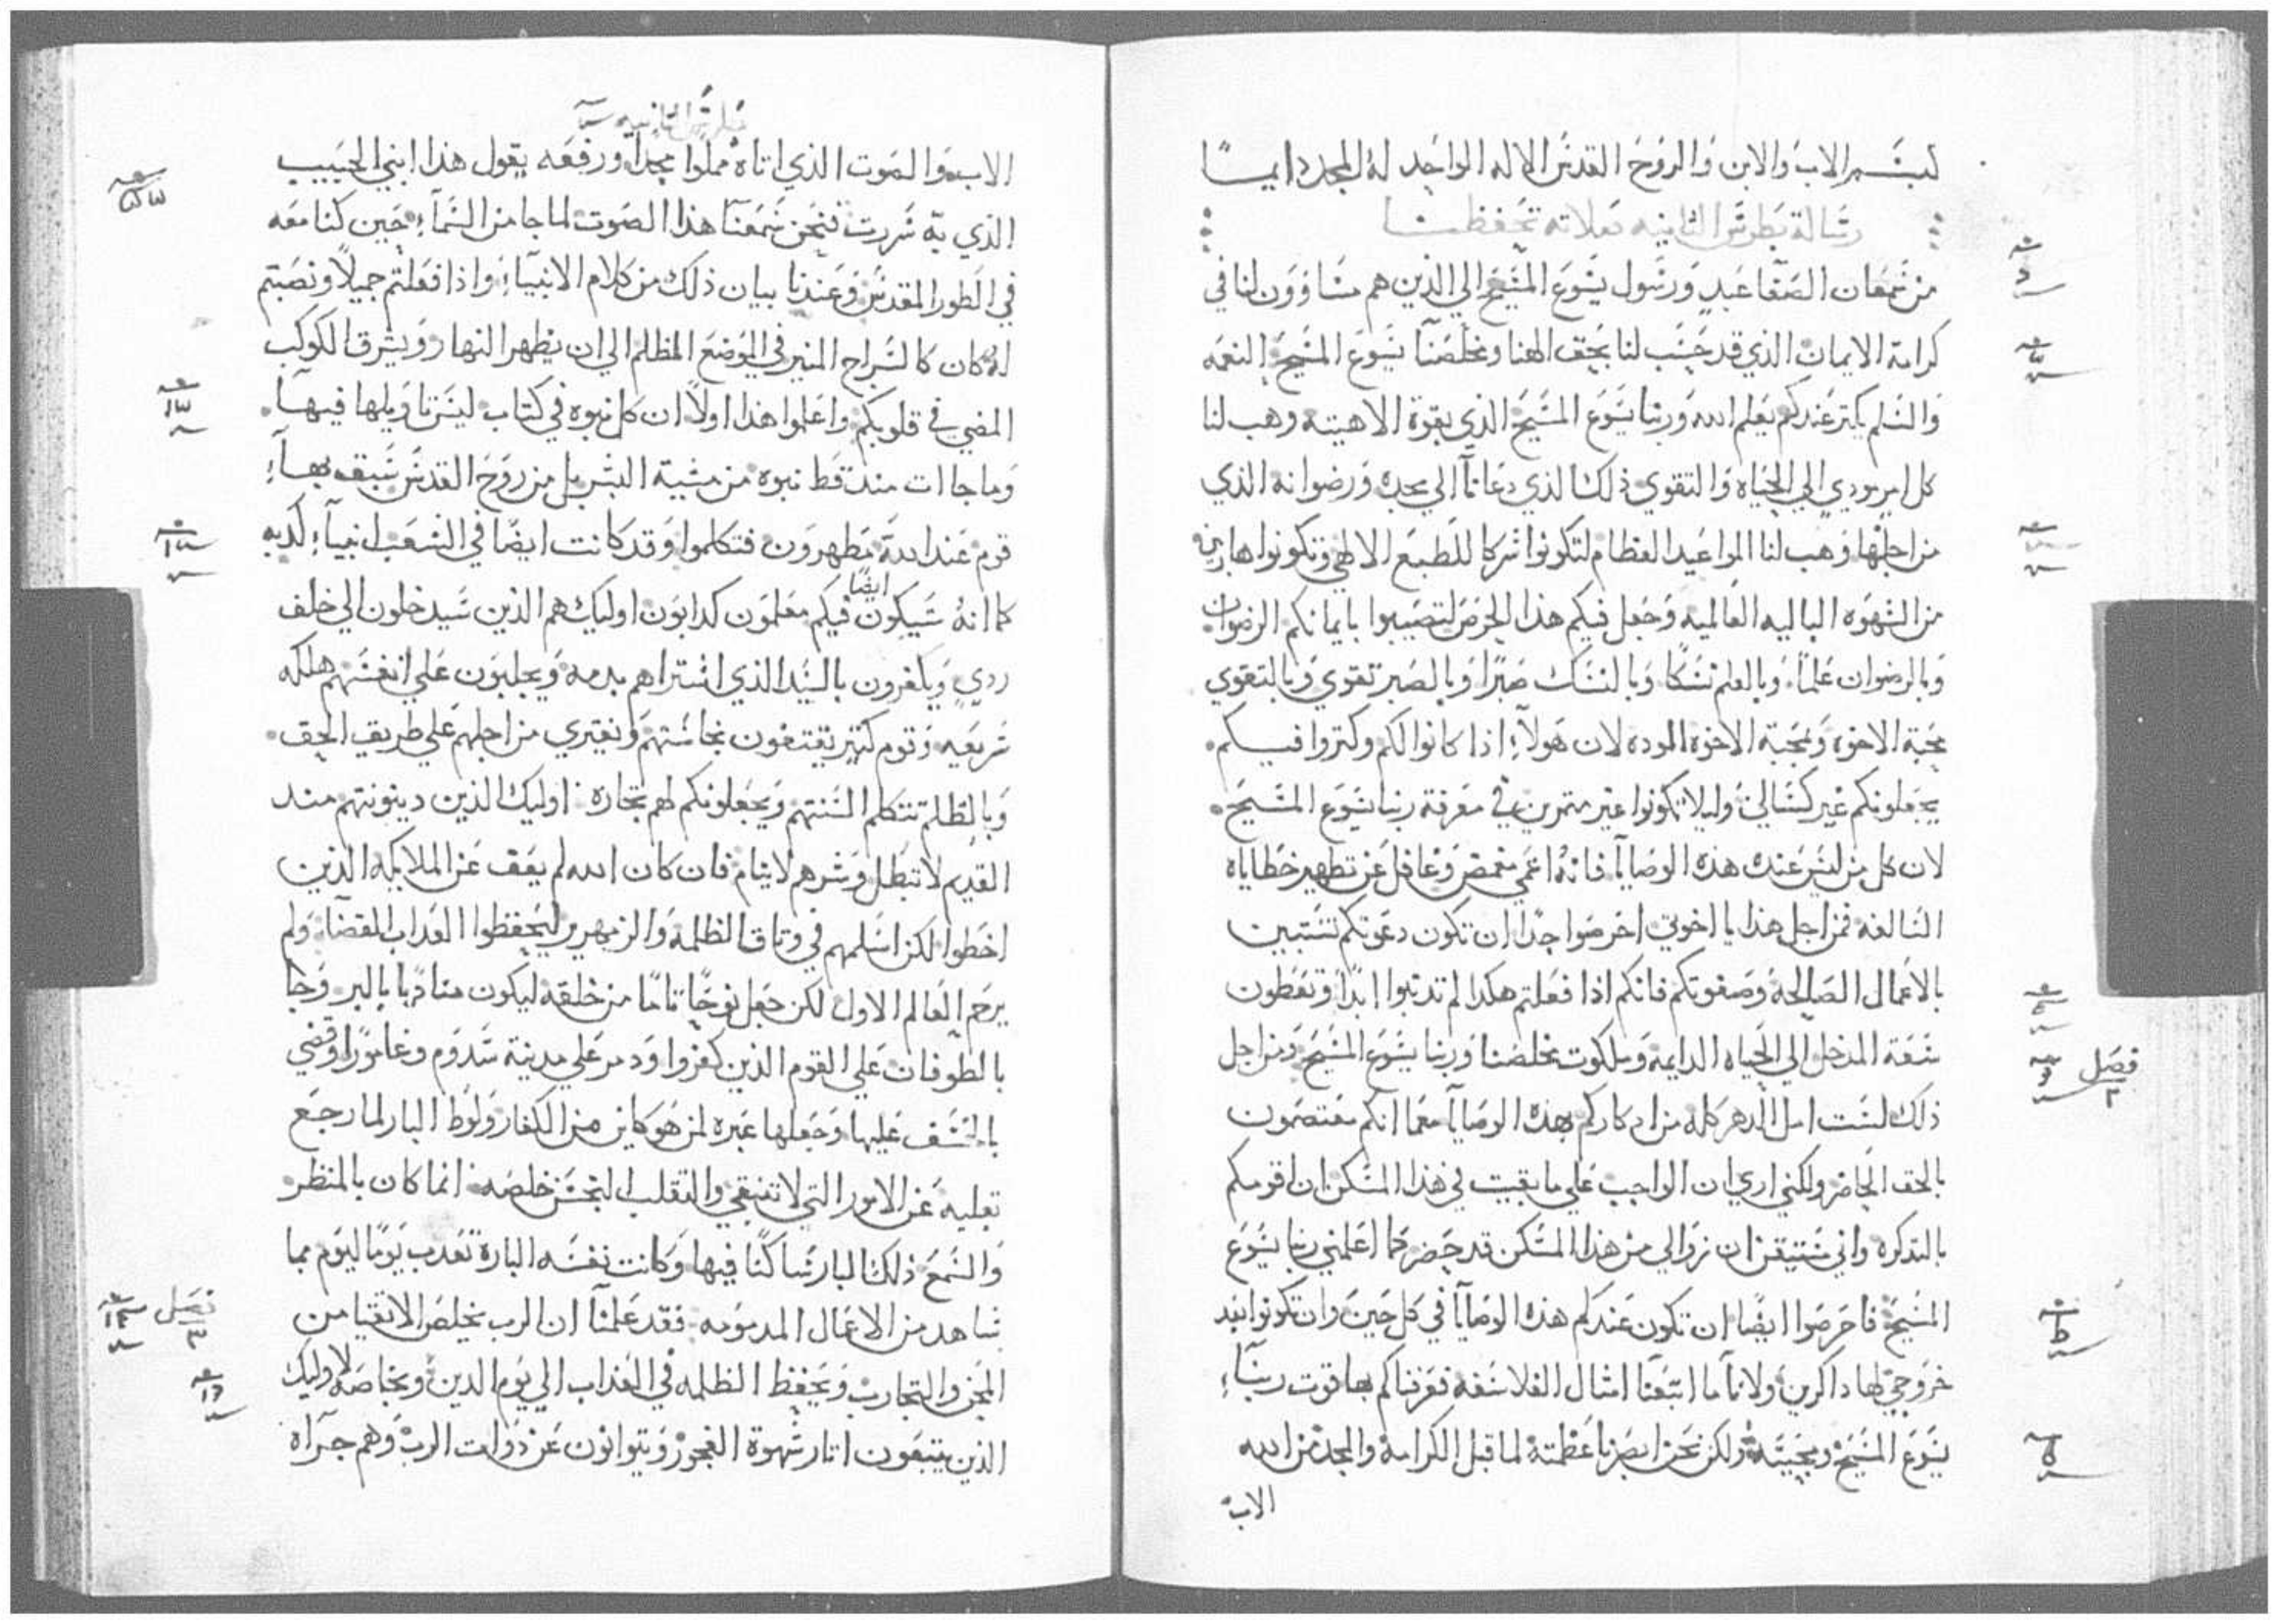 بسم الاب والابن والروح القدس الاله الواحد له المجد دايما
رسالة بطرس الثانيه صلاته تحفظنا
من شمعان الصفا عبد ورسول يسوع المسيح الي الذين هم مساوون لنا في
كرامة الايمان الذي قد حسب لنا بحق الهنا ومخلصنا يسوع المسيح النعمه
والسلم يكتر عندكم بعلم الله وربنا يسوع المسيح الذي بقوة الاهيته وهب لنا
كل امر يودي الي الحياه والتقوي ذلك الذي دعانا الي مجده ورضوانه الذي
من اجلها وهب لنا المواعيد العظام لتكونوا شركا للطبع الالهي وتكونوا هاربين
من الشهوه الباليه العالميه وجعل فيكم هذا الحرص لتصيبوا بايمانكم الرضوان
وبالرضوان علما وبالعلم نسكا وبالنسك صبرا وبالصبر تقوي وبالتقوي
محبة الاخوه ومحبة الاخوه الموده لان هولاء اذا كانوا لكم وكتروا فيكم
يجعلونكم غير كسالي وليلا تكونوا غير متمرين في معرفة ربنا يسوع المسيح
لان كل من ليس عنده هذه الوصايا فانه اعمي مغمض وغافل عن تطهير خطاياه
السالفه فمن اجل هذا يا اخوتي احرصوا جدا ان تكون دعوتكم تستبين
بالاعمال الصالحه وصفوتكم فانكم اذا فعلتم هكدا لم تدنبوا ابدا وتعطون
سعة المدخل الي الحياه الدايمه وملكوت مخلصنا وربنا يسوع المسيح ومن اجل
فصل ٢
ذلك لست امل الدهر كله من ادكاركم بهذه الوصايا معما انكم معتصمون
بالحق الحاضر ولكني اري ان الواجب علي ما بقيت في هذا المسكن ان اقومكم
بالتدكره واني مستيقن ان زوالي من هذا المسكن قد حضر كما اعلمني ربنا يسوع
المسيح فاحرصوا ايضا ان تكون عندكم هذه الوصايا في كل حين وان تكونوا بعد
خروجي لها داكرين ولانا ما اتبعنا امثال الفلاسفه فعرفناكم بها قوت ربنا
يسوع المسيح ومجيته ولكن نحن ابصرنا عظمته لما قبل الكرامة والمجد من الله
الاب
بطرس الثانيه
الاب والصوت الذي اتاه مملوا مجدا ورفعه يقول هذا ابني الحبيب
الذي به سررت فنحن سمعنا هذا الصوت لما جا من السماء حين كنا معه
في الطور المقدس وعندنا بيان ذلك من كلام الانبياء واذا فعلتم جميلا ونصبتم
له كان كالسراج المنير في الموضع المظلم الي ان يظهر النهار ويشرق الكوكب
المضي في قلوبكم واعلموا هذا اولا ان كل نبوه في كتاب ليس تاويلها فيها
وما جاات مند قط نبوه من مشية البشر بل من روح القدس سبق بها
قوم عند الله مطهرون فتكلموا وقد كانت ايضا في الشعب انبياء كدبه
كما انه سيكون ايضا فيكم معلمون كدابون اوليك هم الذين سيدخلون الي خلف
ردي ويكفرون بالسيد الذي اشتراهم بدمه ويجلبون علي انفسهم هلكه
سريعه وقوم كتير يقتفون نجاستهم ويفتري من اجلهم علي طريق الحق
وبالظلم تتكلم السنتهم ويجعلونكم لهم تجاره اوليك الذين دينونتهم مند
القديم لا تبطل وشرهم لا ينام فان كان الله لم يعف عن الملايكه الذين
اخطوا لكن اسلمهم في وتاق الظلمه والزمهرير ليحفظوا العداب القضا ولم
يرحم العالم الاول لكن جعل نوحا تامنا من خلقه ليكون مناديا بالبر وجا
بالطوفان علي القوم الذين كفروا ودمر علي مدينة سدوم وغامورا وقضي
بالخسف عليها وجعلها عبره لمن هو كاين من الكفار ولوط البار لما رجع
بقلبه عن الامور التي لا تنبغي والتقلب النجس خلصه انما كان بالمنظر
والسمع ذلك البار ساكنا فيها وكانت نفسه البارة تعدب يوما ليوم مما
يشاهد من الاعمال المدمومه فقد علمنا ان الرب يخلص الاتقيا من
فصل ٣
المحن والتجارب ويحفظ الظلمه في العذاب الي يوم الدين وبخاصه لاوليك
الذين يتبعون اتار شهوة الفجور ويتوانون عن ذوات الرب وهم جراه